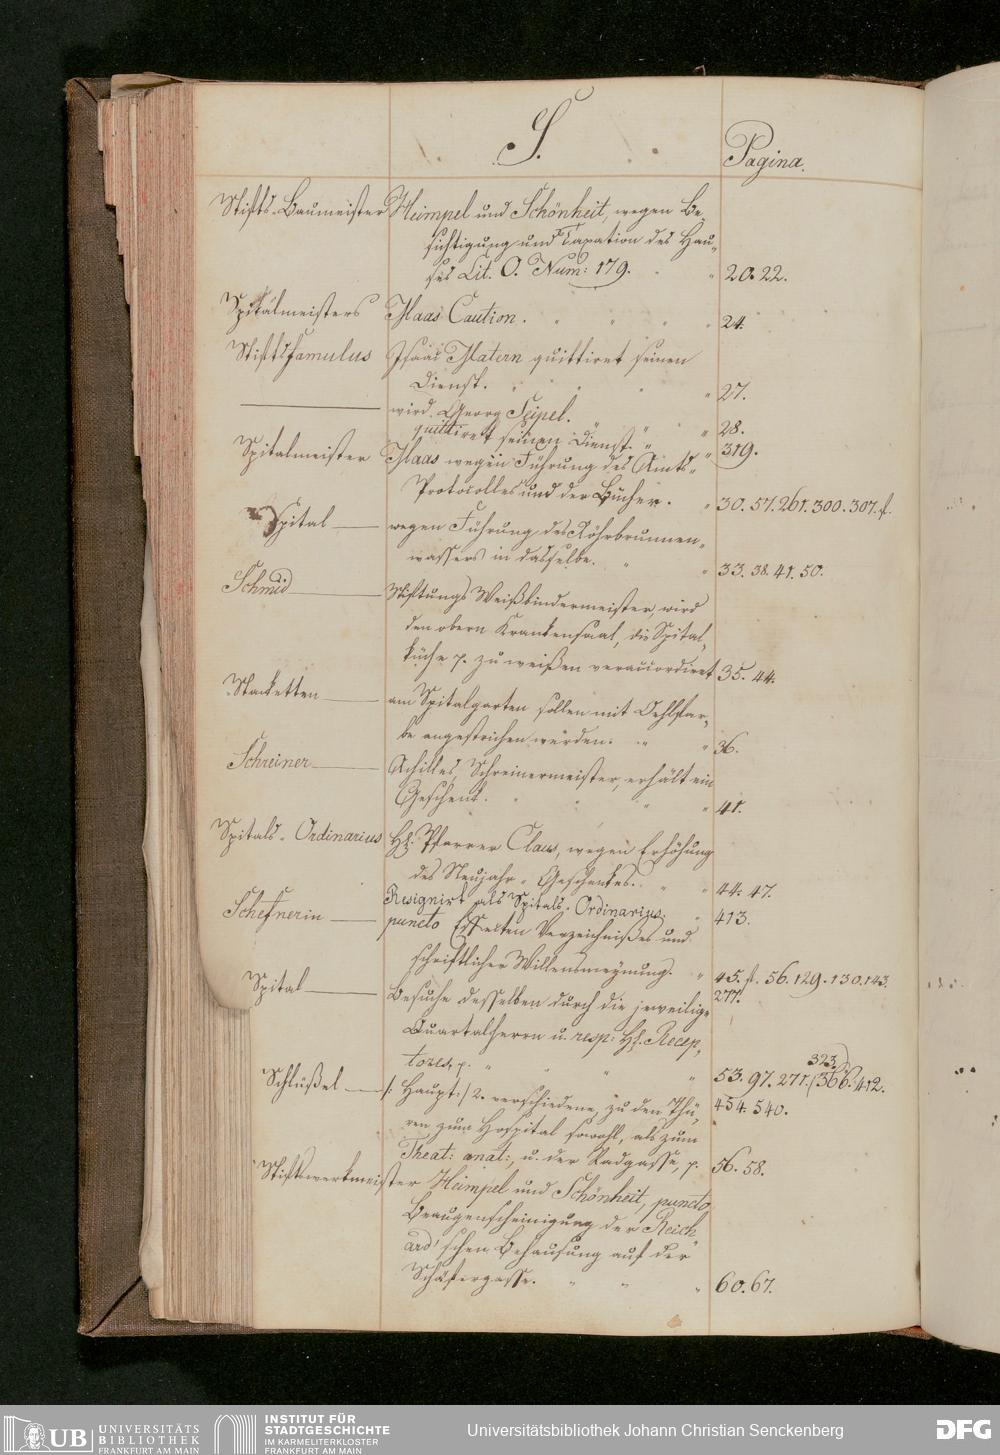 S.
Pagina.
Stifts-Baumeister Heimpel und Schönheit, wegen Be-
sichtigung und Taxation des Hau-
ses Lit. O. Num: 179. 20. 22.
Spitalmeisters Haas Caution. 24.
Stiftsfamulus Matern quittiret seinen
Dienst. 27.
wird Georg Seipel. 28.
quittiret seinen Dienst. 319.
Spitalmeister Haas wegen Führung des Amts-
Protocolles und der Bücher. 30. 57. 261. 300. 307. f.
Spital wegen Führung des Röhrbrunnen-
wassers in dasselbe. 33. 38. 41. 50.
Schmid Stiftungs Weißbindermeister, wird
den obern Krankensaal, die Spital-
küche p. zu weißen veraccordiret 35. 44.
Stacketten am Spitalgarten sollen mit Oehlfar-
be angestrichen werden. 36.
Schreiner Achilles, Schreinermeister, erhält ein
Geschenk. 41.
Spitals-Ordinarius H. Pfarrer Claus, wegen Erhöhung
des Neujahr-Geschenkes. 44. 47.
Resignirt als Spitals-Ordinarius. 413.
Schefnerin puncto Effecten Verzeichnißes und
schriftlicher Willensmeynung. 45. f. 56. 129. 130. 143.
277.
Spital Besuche desselben durch die jeweilige
Quartalherrn u. resp: H. Recep-
tores, p. 53. 97. 271. 323. 366. 412.
454. 540.
Schlüßel /: Haupt :/ 2. verschiedene, zu den Thü-
ren zum Hospital sowohl, als zum
Theat: anat:, u. der Radgasse, p. 56. 58.
Stiftswerkmeister Heimpel und Schönheit, puncto
Beaugenscheinigung der Reich
ard'schen Behausung auf der
Schäfergasse. 60. 67.
UB UNIVERSITÄTS
BIBLIOTHEK
FRANKFURT AM MAIN
INSTITUT FÜR
STADTGESCHICHTE
IM KARMELITERKLOSTER
FRANKFURT AM MAIN
Universitätsbibliothek Johann Christian Senckenberg
DFG